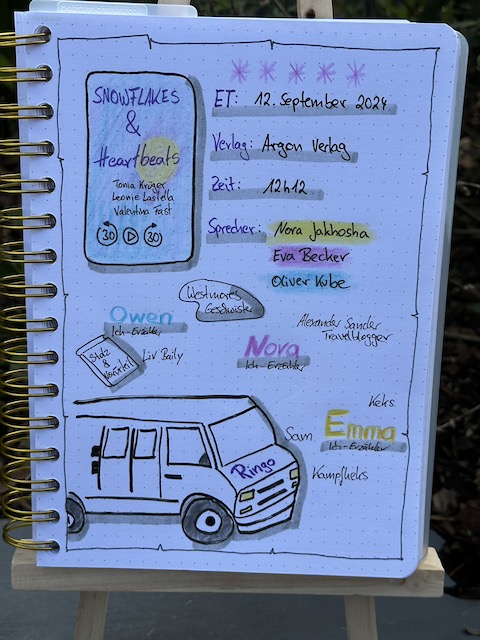 SNOWFLAKES
&
Heartbeats
Tonia Krüger
Leonie Lastella
Valentina Fast
30 30
ET: 12. September 2024
Verlag: Argon Verlag
Zeit: 12h12
Sprecher: Nora Jakhosha
Eva Becker
Oliver Kube
Westmores
Geschwister
Owen
Ich-Erzähler
Alexander Sander
Travelblogger
Stolz
&
Vorurteil
Liv Baily
Nora
Ich-Erzähler
Keks
Emma
Ich-Erzähler
Sam
Kampfkeks
Ringo